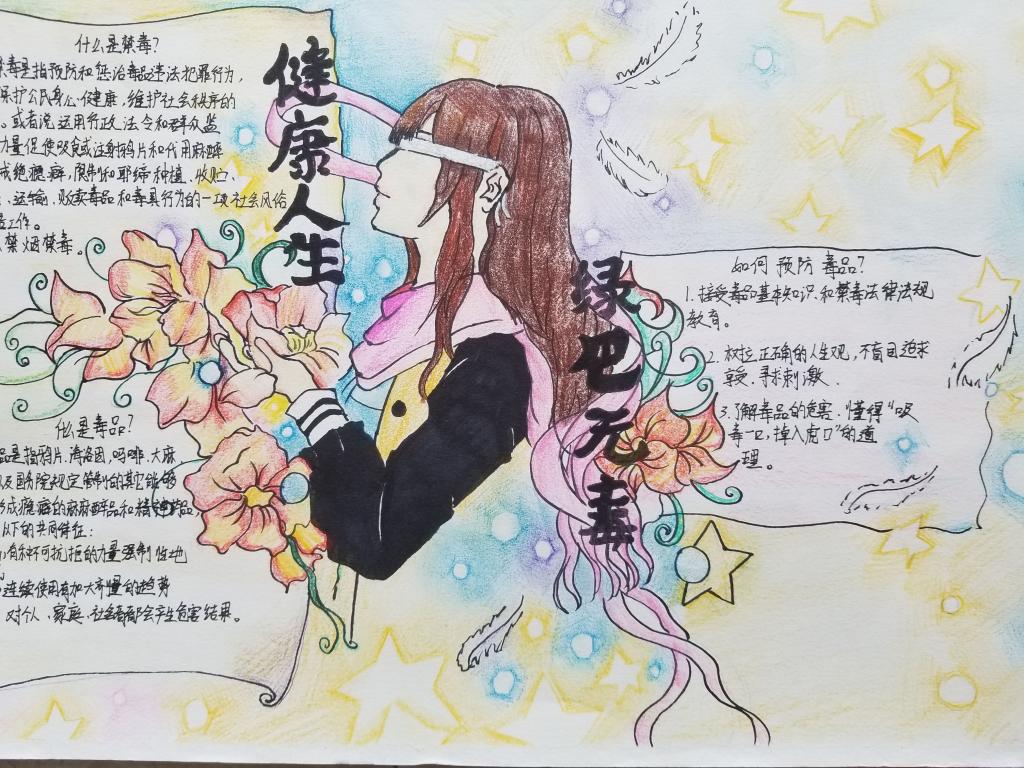 什么是禁毒?
禁毒是指预防和惩治毒品违法犯罪行为,
保护公民身心健康,维护社会秩序的
。或者说运用行政、法令和群众监
力量促使吸食或注射鸦片和代用麻醉
戒绝瘾癖,限制和取缔种植、收贮、
、运输、贩卖毒品和毒具行为的一项社会风俗
工作。
禁烟禁毒。
健康人生
绿色无毒
什么是毒品?
品是指鸦片、海洛因,吗啡、大麻
以及国务院规定管制的其它能够
形成瘾癖的麻醉品和精神药品
以下的共同特征:
有种不可抗拒的力量强制性地
连续使用有加大剂量的趋势
对个人、家庭、社会都会产生危害结果。
如何预防毒品?
1. 接受毒品基本知识和禁毒法律法规
教育。
2. 树立正确的人生观,不盲目追求
享受、寻求刺激.
3. 了解毒品的危害,懂得“吸
毒一口,掉入虎口”的道
理。